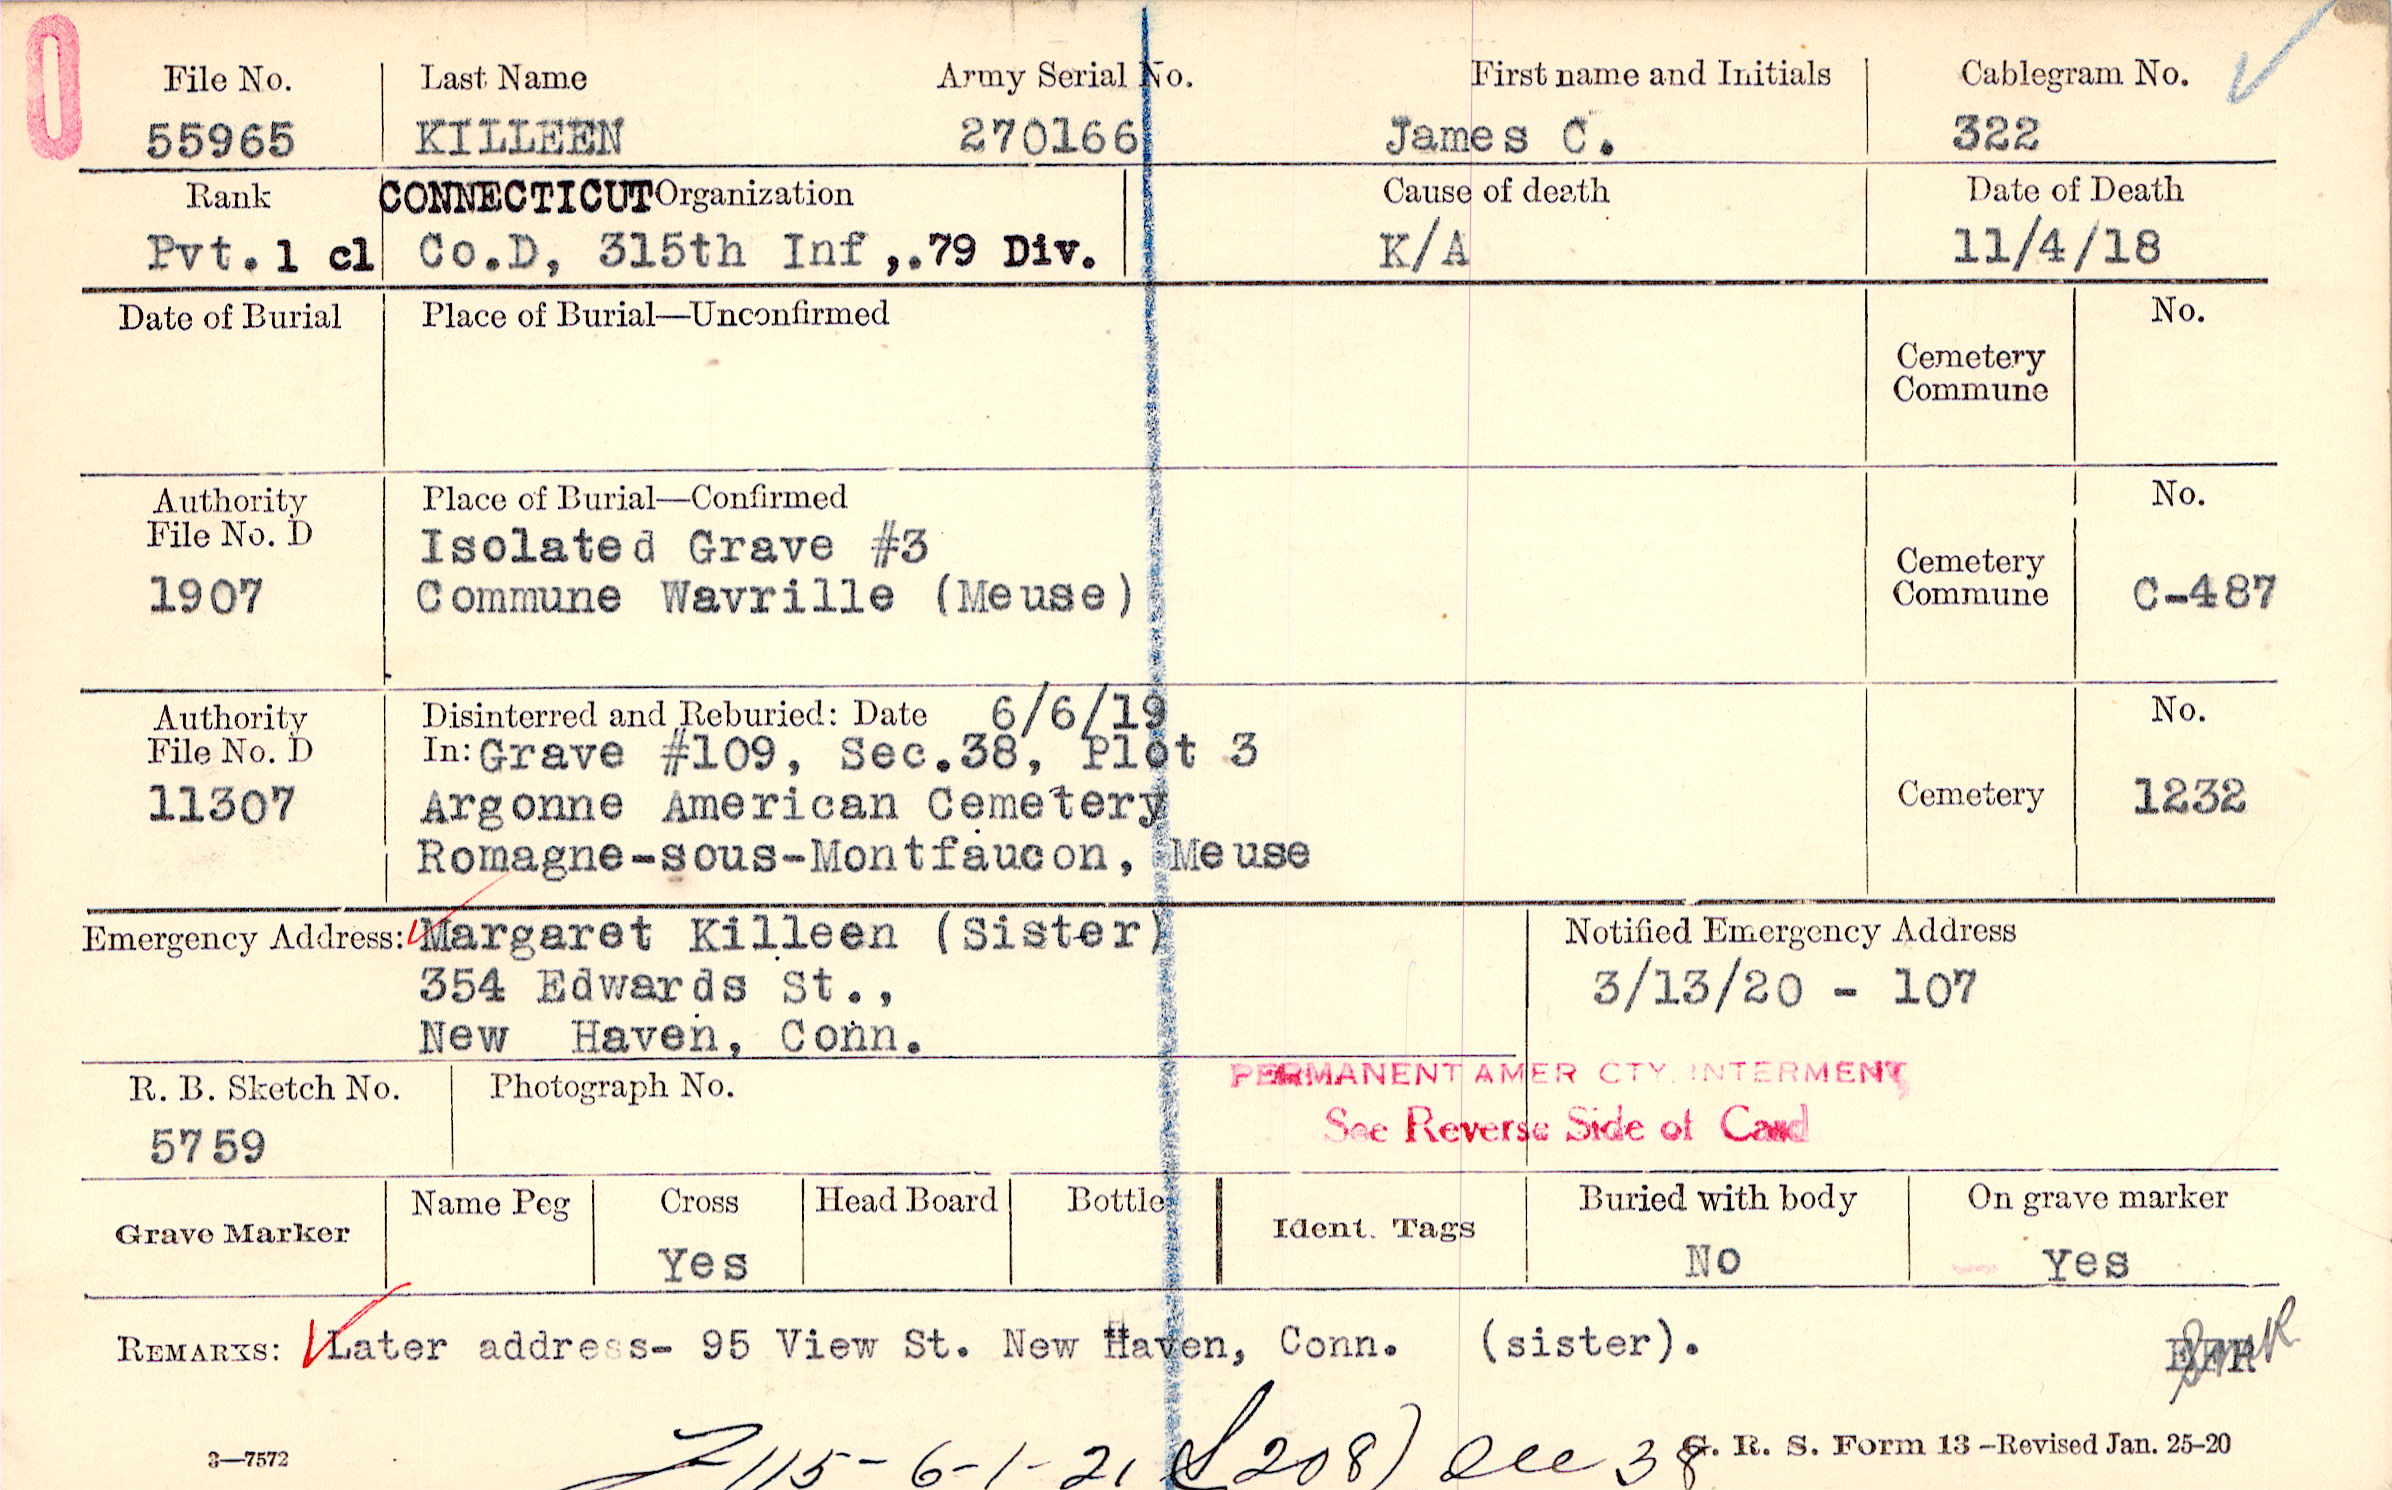 File No. Last Name Army Serial No. First name and Initials Cablegram No.
55965 KILLEEN 270166 James C. 322
Rank CONNECTICUT Organization Cause of death Date of Death
Pvt. 1 cl Co.D, 315th Inf,.79 Div. K/A 11/4/18
Date of Burial Place of Burial—Unconfirmed No.
Cemetery
Commune
Authority Place of Burial—Confirmed No.
File No. D Isolated Grave #3
1907 Commune Wavrille (Meuse) Cemetery
Commune C-487
Authority Disinterred and Reburied: Date 6/6/19 No.
File No. D In: Grave #109, Sec.38, Plot 3
11307 Argonne American Cemetery Cemetery 1232
Romagne-sous-Montfaucon, Meuse
Emergency Address: Margaret Killeen (Sister) Notified Emergency Address
354 Edwards St., 3/13/20 - 107
New Haven, Conn.
PERMANENT AMER CTY. INTERMENT
R. B. Sketch No. Photograph No. See Reverse Side of Card
5759
Grave Marker Name Peg Cross Head Board Bottle Ident. Tags Buried with body On grave marker
Yes No Yes
REMARKS: Later address- 95 View St. New Haven, Conn. (sister).
3—7572 115-6-1-21 208) 38 G. R. S. Form 13—Revised Jan. 25-20